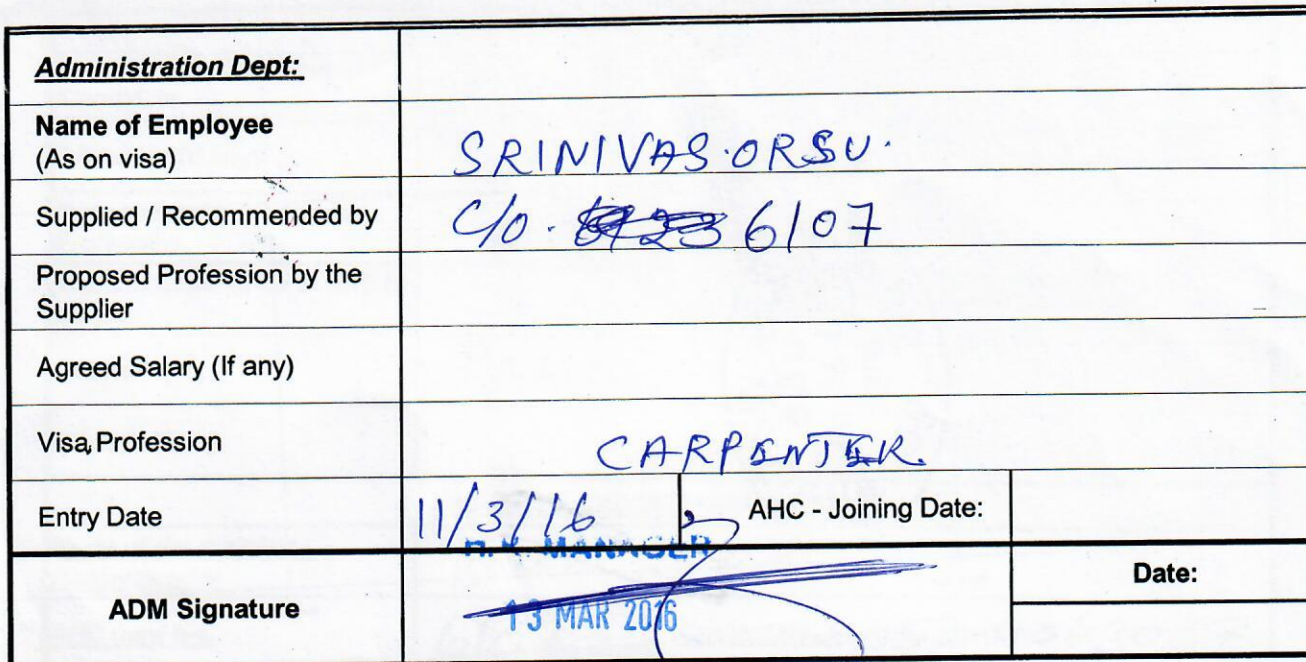 Administration Dept:
Name of Employee
(As on visa)
SRINIVAS.ORSU.
Supplied / Recommended by
C/o. 6/07
Proposed Profession by the
Supplier
Agreed Salary (If any)
Visa Profession
CARPENTER
Entry Date
11/3/16
AHC - Joining Date:
MANAGER
ADM Signature
13 MAR 2016
Date: